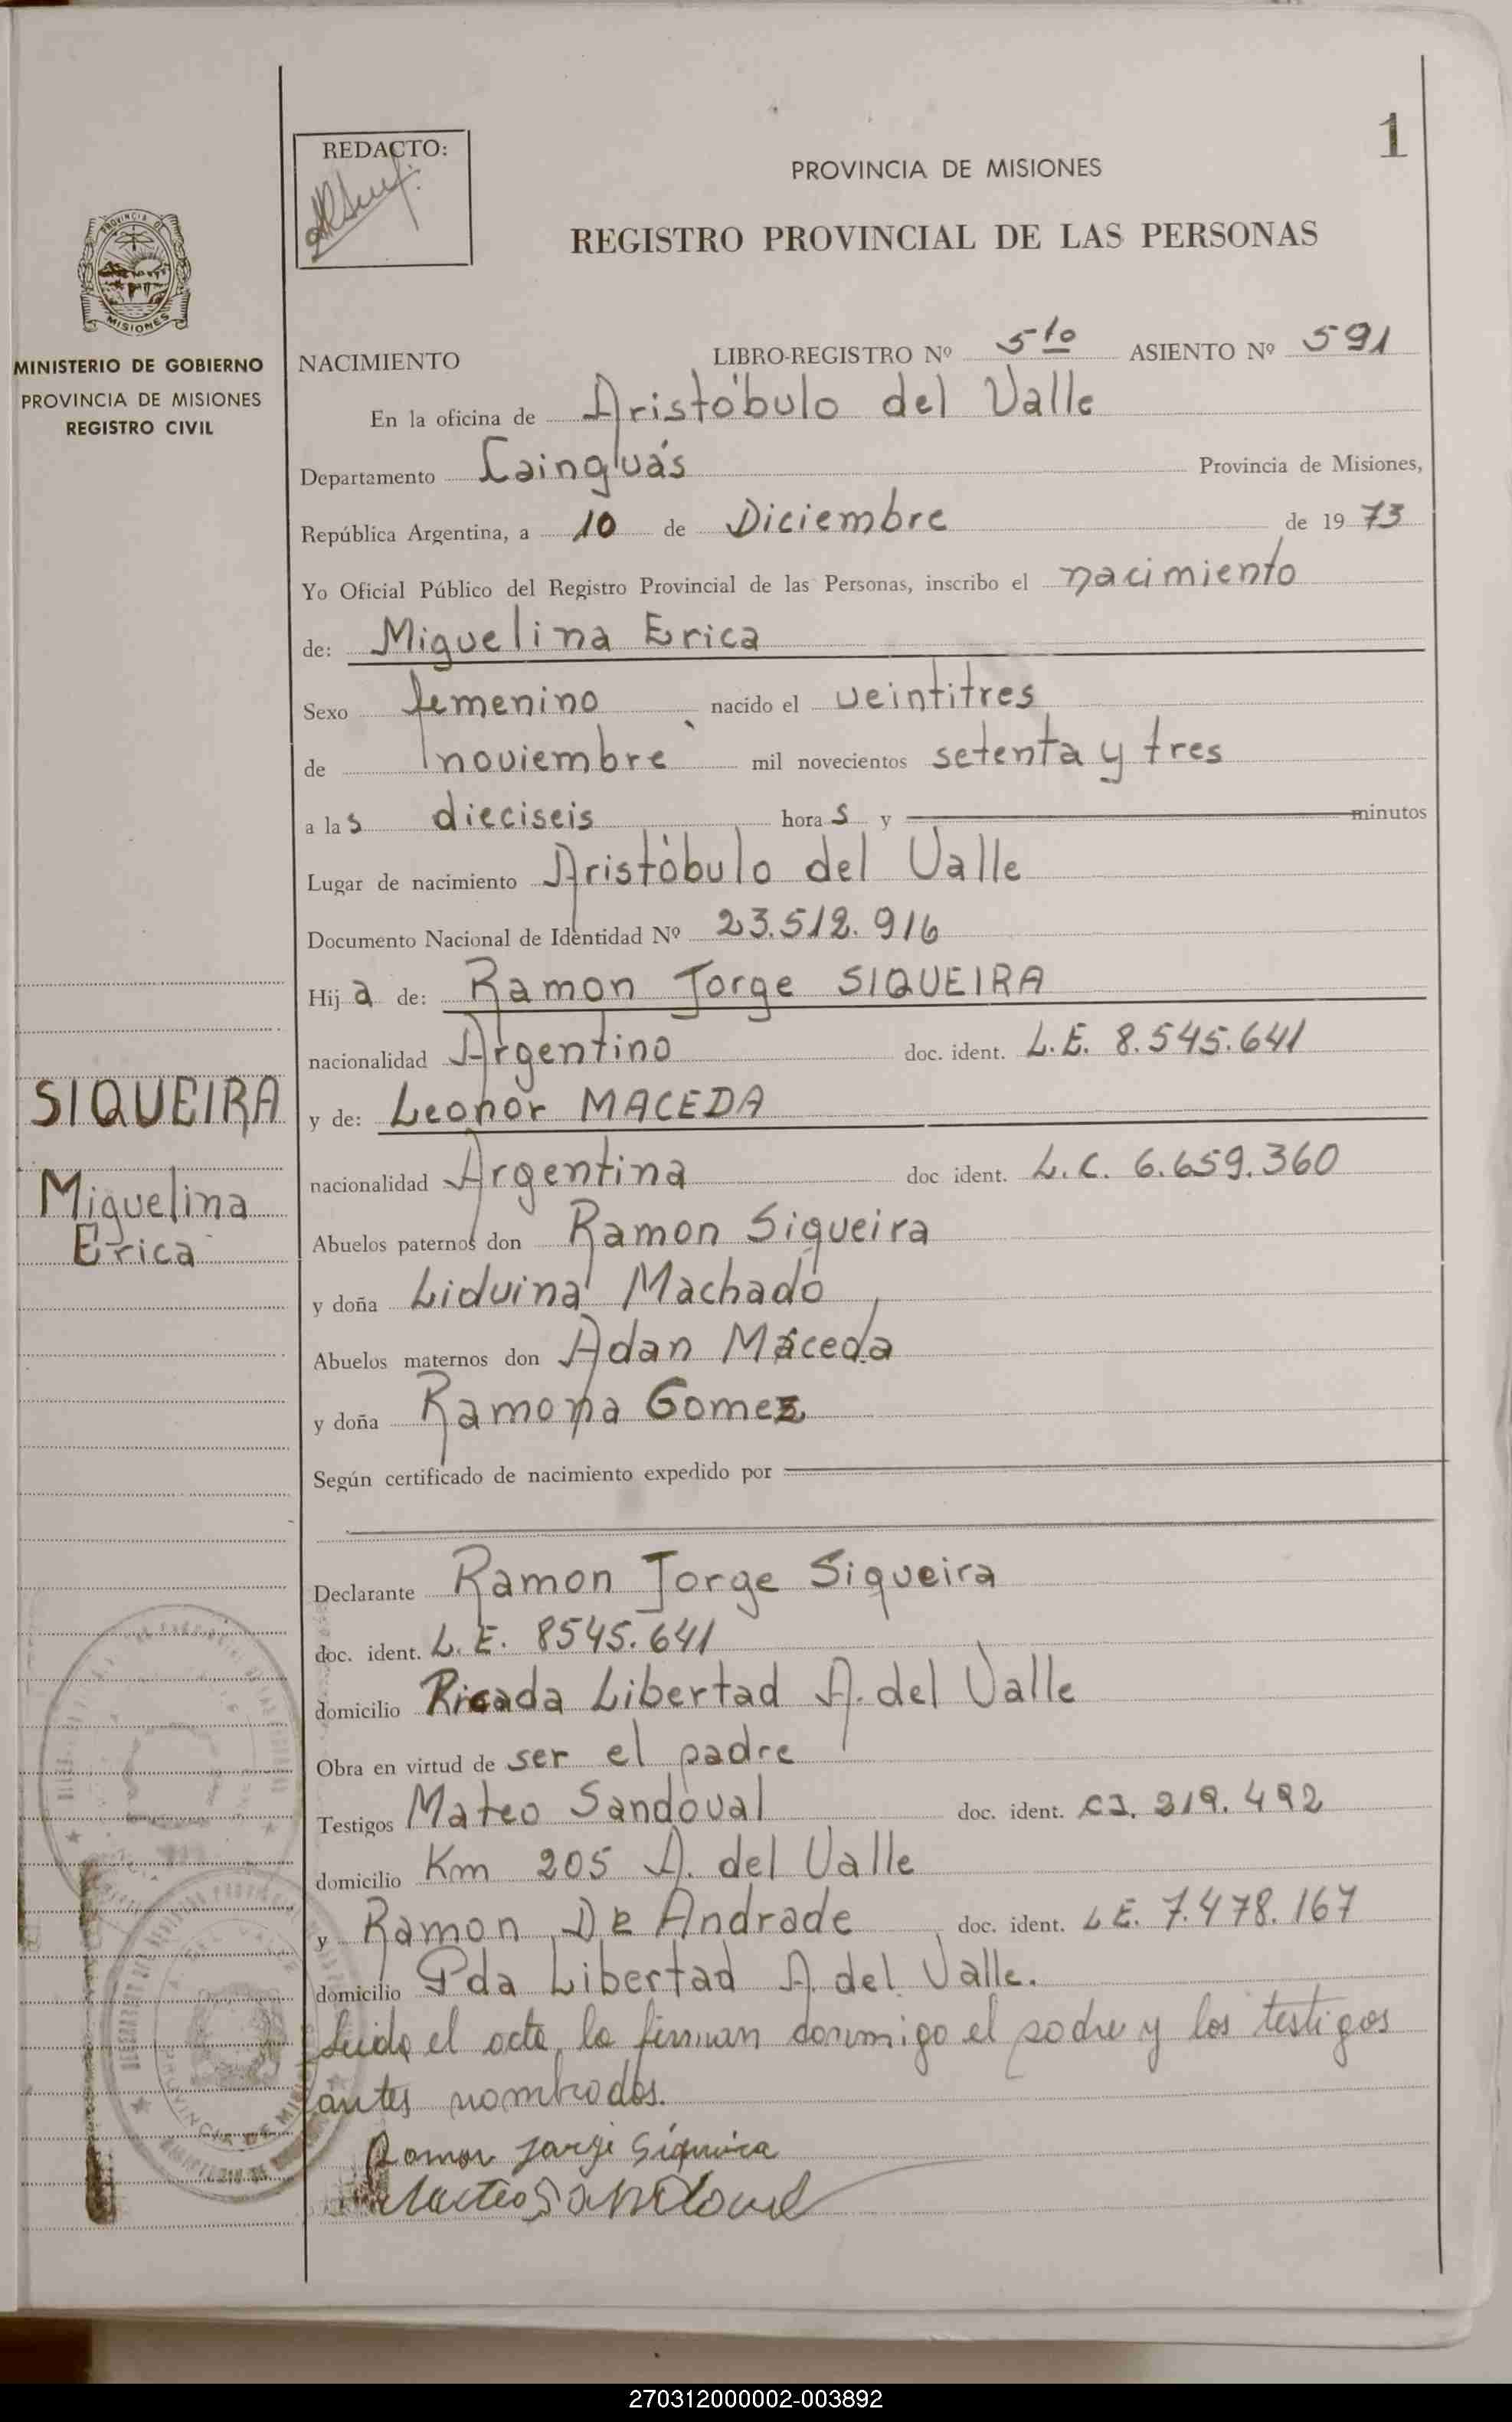 1
REDACTO:
PROVINCIA DE MISIONES
REGISTRO PROVINCIAL DE LAS PERSONAS
MISIONES
MINISTERIO DE GOBIERNO
PROVINCIA DE MISIONES
REGISTRO CIVIL
NACIMIENTO LIBRO-REGISTRO Nº 5to ASIENTO Nº 591
En la oficina de Aristóbulo del Valle
Departamento Cainguás Provincia de Misiones,
República Argentina, a 10 de Diciembre de 1973
Yo Oficial Público del Registro Provincial de las Personas, inscribo el nacimiento
de: Miguelina Erica
Sexo femenino nacido el veintitres
de noviembre mil novecientos setenta y tres
a las dieciseis horas y minutos
Lugar de nacimiento Aristóbulo del Valle
Documento Nacional de Identidad Nº 23.512.916
Hija de: Ramon Jorge SIQUEIRA
nacionalidad Argentino doc. ident. L.E. 8.545.641
SIQUEIRA
y de: Leonor MACEDA
nacionalidad Argentina doc ident. L.C. 6.659.360
Miguelina
Erica
Abuelos paternos don Ramon Siqueira
y doña Liduina Machado
Abuelos maternos don Adan Maceda
y doña Ramona Gomez
Según certificado de nacimiento expedido por
Declarante Ramon Jorge Siqueira
doc. ident. L.E. 8545.641
domicilio Picada Libertad A. del Valle
Obra en virtud de ser el padre
Testigos Mateo Sandoval doc. ident. CI. 219.492
domicilio Km 205 A. del Valle
y Ramon De Andrade doc. ident. L E. 7.478.167
domicilio Pda Libertad A del Valle.
Leida el acta, la firman conmigo el padre y los testigos
antes nombrados.
Ramon Jorge Siqueira
Mateo Sandoval
270312000002-003892